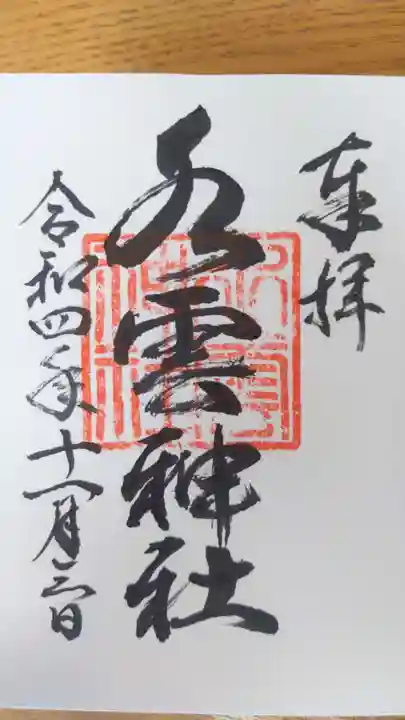 奉拝
八雲神社
令和四年十一月三日